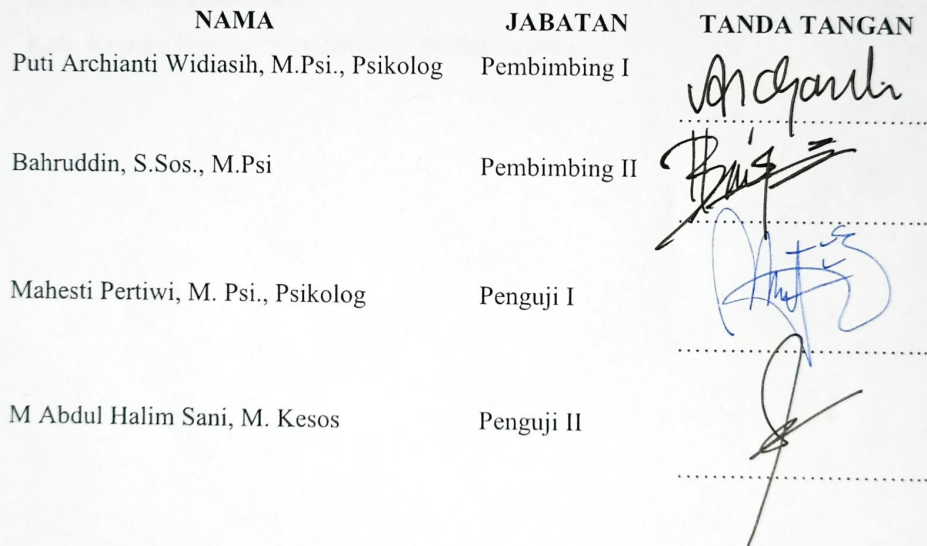 NAMA JABATAN TANDA TANGAN
Puti Archianti Widiasih, M.Psi., Psikolog Pembimbing I
Bahruddin, S.Sos., M.Psi Pembimbing II
Mahesti Pertiwi, M. Psi., Psikolog Penguji I
M Abdul Halim Sani, M. Kesos Penguji II